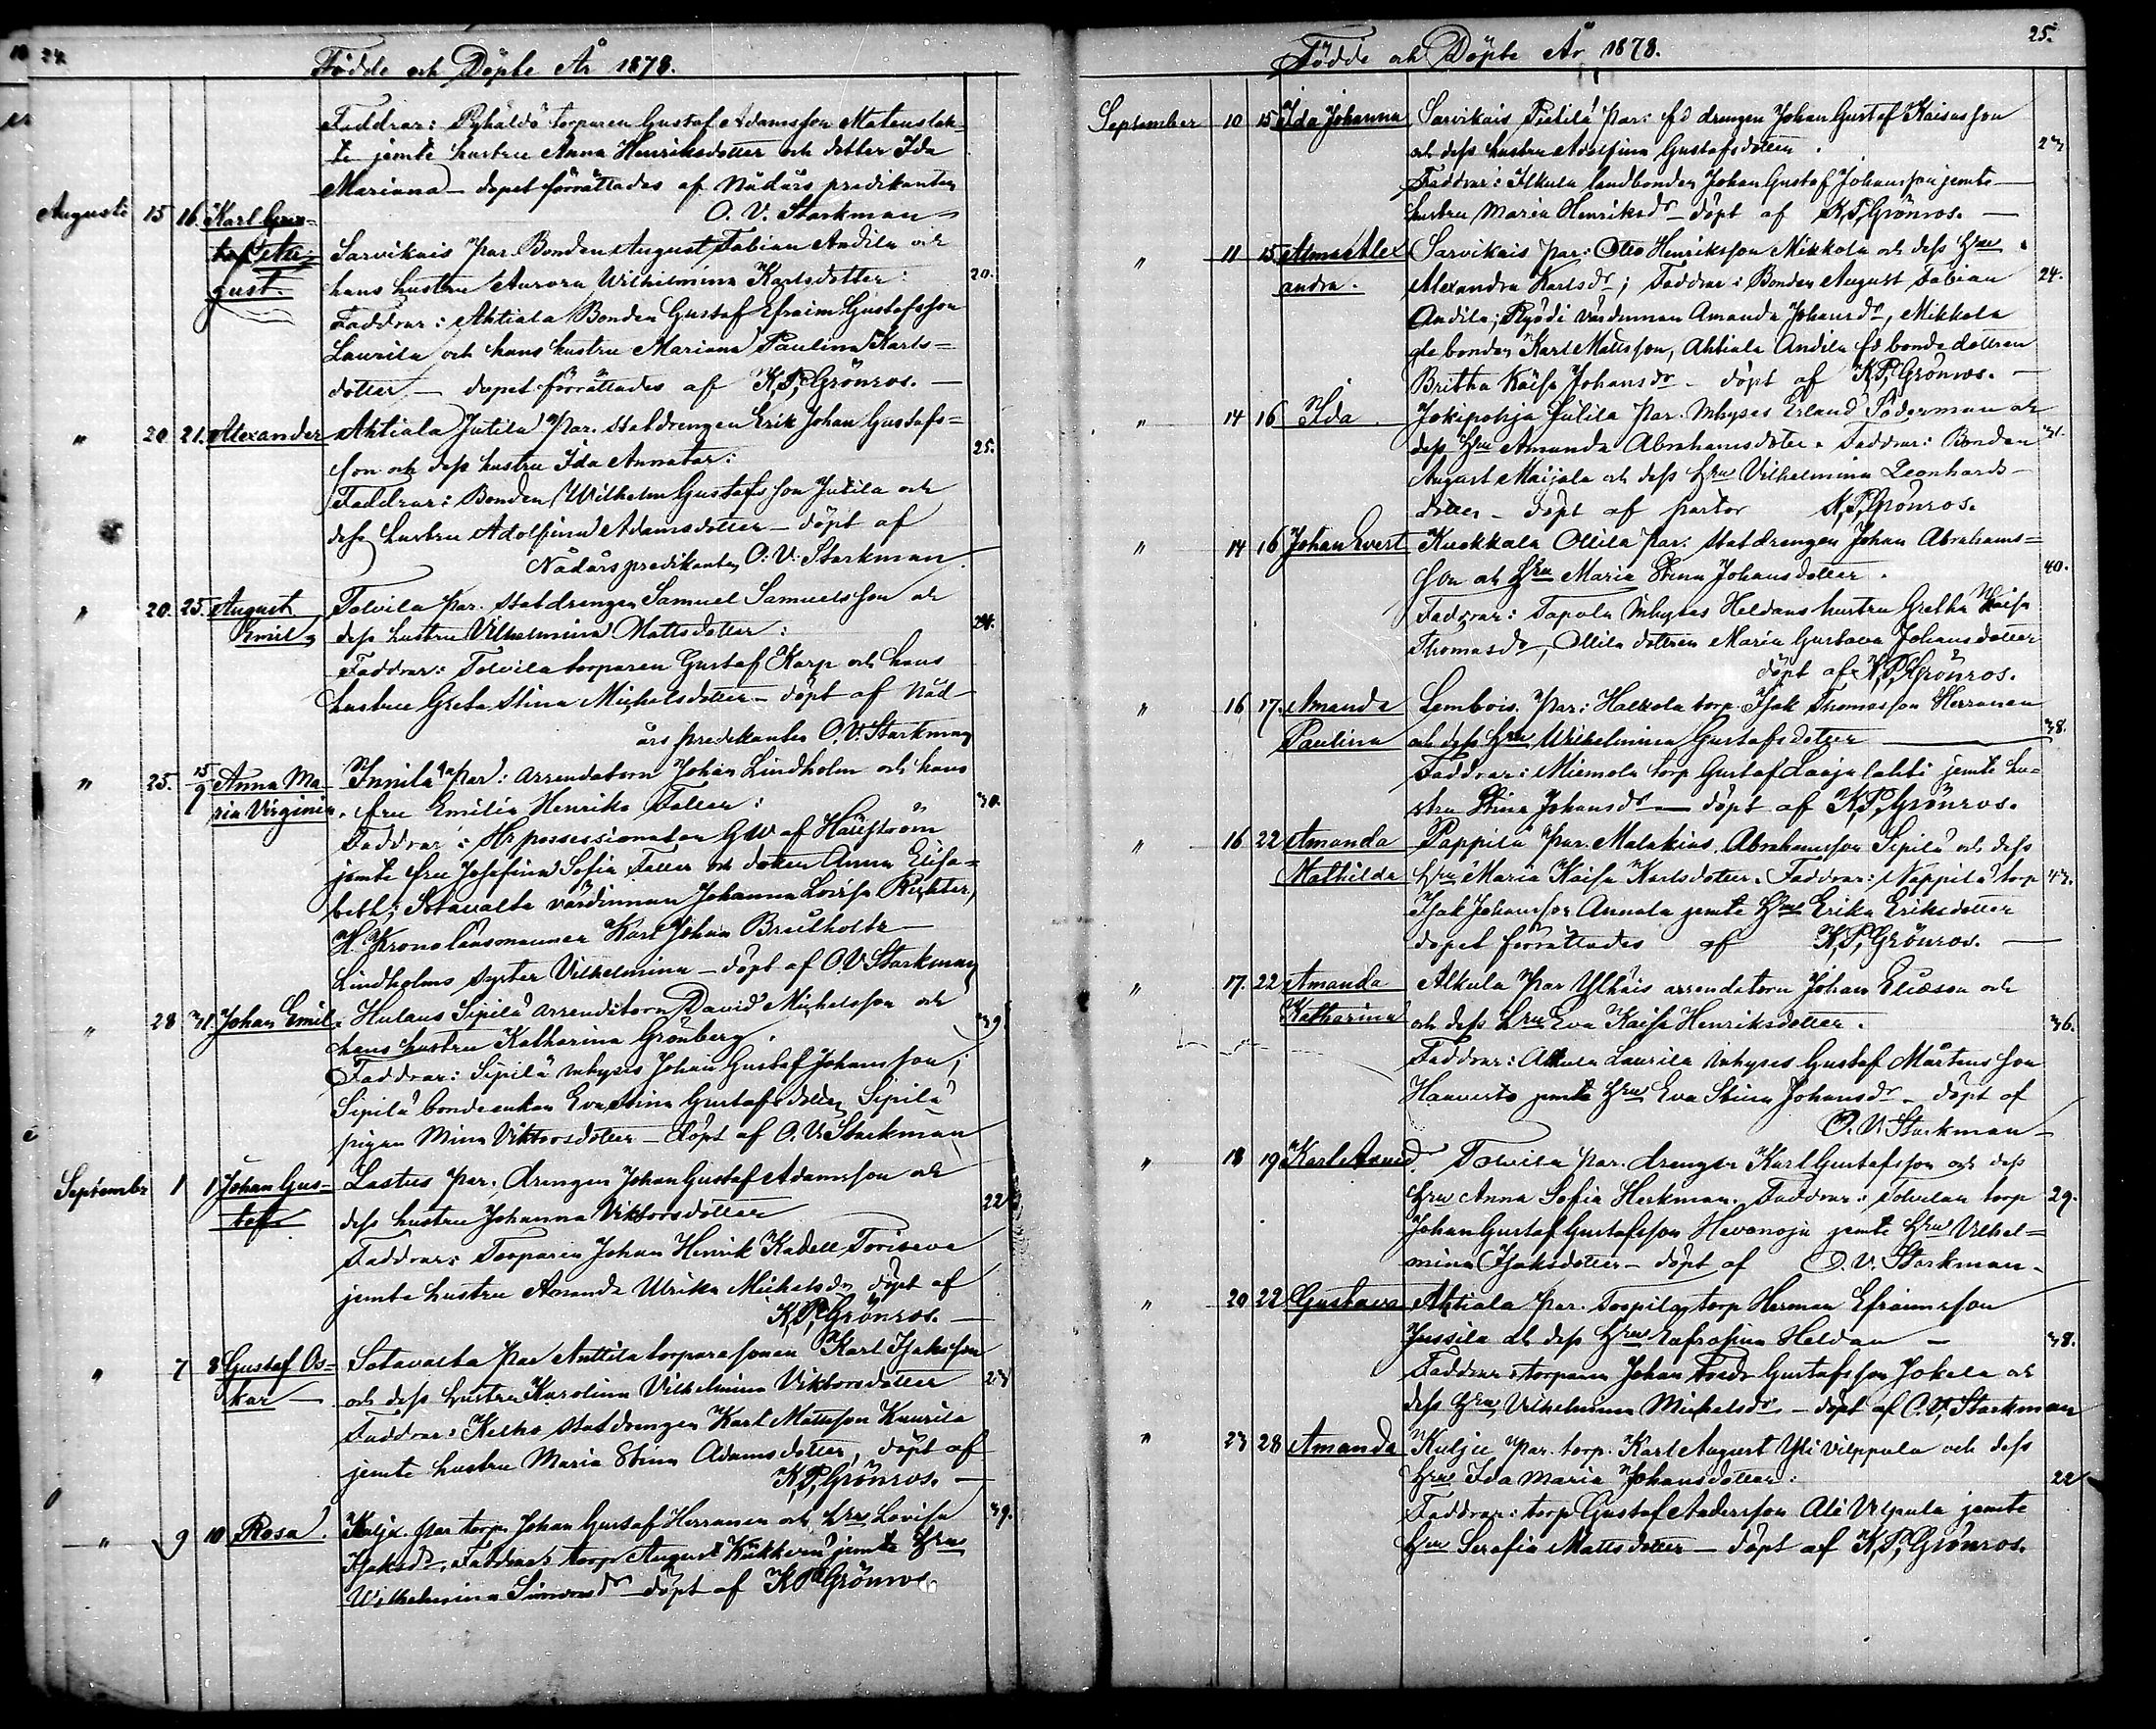 24.
Födde och Döpte År 1878.
Faddrar: Pyhäldö torparen Gustaf Adamsson
te jemte hustru Anna Henriksdotter och dotter Ida
Mariana – dopet förrättades af Nådårs predikanten
O. V. Starkman
Augusti 15 16. Karl Gus-
taf Au-
gust.
Sarvikais par. Bonden August Fabian Andila och
hans hustru Aurora Wilhelmina Karlsdotter: 20.
Faddrar: Ahtiala Bonden Gustaf Efraim Gustafsson
Laurila och hans hustru Mariana Paulina Karls=
dotter – dopet förrättades af K. P. Grönros. –
" 20. 21. Alexander Ahtiala Jutila par. statdrengen Erik Johan Gustafs=
son och dess hustru Ida Annatar: 25.
Faddrar: Bonden Wilhelm Gustafsson Jutila och
dess hustru Adolfina Adamsdotter – döpt af
Nådårspredikanten O. V. Starkman
" 20. 25. August
Emil
Tolvila par. statdrengen Samuel Samuelsson och
dess hustru Vilhelmina Mattsdotter: 24.
Faddrar: Tolvila torparen Gustaf Karp och hans
hustru Greta Stina Michelsdotter – döpt af Nåd-
års predikanten O. V. Starkman
" 25. 15/9 Anna Ma-
ria Virginia.
Innilä par: arrendatorn Johan Lindholm och hans
fru Emilia Henrika Faller: 30.
Faddrar: Hr possessionaten GW af Hällström
jemte fru Josefina Sofia Faller och dottren Anna Elisa=
beth; Sotavalta värdinnan Johanna Lovisa Richter,
H. Kronolänsmannen Karl Johan Breitholtz –
Lindholms syster Vilhelmina – döpt af O V Starkman
" 28 31. Johan Emil. Hulaus Sipilä arrenditorn David Michelsson och
hans hustru Katharina Grönberg. 39.
Faddrar: Sipilä inhyses Johan Gustaf Johansson;
Sipilä bondeenkan Eva Stina Gustafsdotter, Sipilä
pigan Mina Viktorsdotter – döpt af O. V. Starkman
September 1 1 Johan Gus-
taf.
Lastus par. drengen Johan Gustaf Adamsson och
dess hustru Johanna Viktorsdotter 22
Faddrar: Torparen Johan Henrik Kadell Toriseva
jemte hustru Amanda Ulrika Michelsdr döpt af
K. P. Grönros. –
" 7 8 Gustaf Os-
kar –
Sotavalta par Anttila torparesonen Karl Isaksson
och dess hustru Karolina Vilhelmina Viktorsdotter 23
Faddrar: Kelho statdrengen Karl Mattsson Kaurila
jemte hustru Maria Stina Adamsdotter, döpt af
K. P. Grönros. –
" 9 10 Rosa. Kulju par torp. Johan Gustaf Herranen och hru Lovisa 39.
Isaksdr. Faddrar: torp August Kukkern jemte hru
Wilhelmina Simonsdr – döpt af K P Grönros.
25.
Födde och Döpte År 1878.
September 10 15 Ida Johanna Sarvikais Pietilä par: fd drengen Johan Gustaf Kaisasson
och dess hustru Adolfina Gustafsdotter. 23
Faddrar: Ilkula landbonden Johan Gustaf Johansson jemte
hustru Maria Henriksdr – döpt af K. P. Grönros. –
" 11 15 Alma Alex
andra.
Sarvikais par: Otto Henriksson Mikkola och dess hru
Alexandra Karlsdr; Faddrar: Bonden August Fabian 24.
Andila; Pyödi värdinnan Amanda Johansdr, Mikkola
gle bonden Karl Mattsson, Ahtiala Andila fd bonde dottren
Britha Kaisa Johansdr – döpt af K. P. Grönros. –
" 14 16 Ida. Jokipohja Jutila par. inhyses Erland Söderman och
dess hru Amanda Abrahamsdotter. Faddrar: Bonden 31.
August Maijala och dess hru Vilhelmina Leonhards-
dotter – döpt af pastor K. P. Grönros.
" 14 16 Johan Evert Kuokkala Ollila par: statdrengen Johan Abrahams=
son och hru Maria Stina Johansdotter. 40.
Faddrar: Tapola inhyses Heldans hustru Gretha Kaisa
Thomasdr, Ollila dottren Maria Gustava Johansdotter
döpt af K. P. Grönros.
" 16 17. Amanda
Paulina
Lembois par: Halkola torp. Isak Thomasson Herranen
och dess hru Wilhelmina Gustafsdotter 38.
Faddrar: Miemola torp Gustaf Laajalahti jemte hu-
stru Stina Johansdr – döpt af K. P. Grönros.
" 16 22 Amanda
Mathilda
Pappila par. Malakias Abrahamsson Sipilä och dess
hru Maria Kaisa Karlsdotter. Faddrar: Nappila torp 43.
Isak Johansson Annala jemte hru Erika Eriksdotter
dopet förrättades af K. P. Grönros. –
" 17. 22 Amanda
Katharina
Alkula par Ylhäis arrendatorn Johan Ericsson och
och dess hru Eva Kaisa Henriksdotter. 36.
Faddrar: Alkula Laurila inhyses Gustaf Mårtensson
Haavisto jemte hru Eva Stina Johansdr – döpt af
O. V. Starkman –
" 18 19 Karl Arvid. Tolvila par. drengen Karl Gustafsson och dess
hru Anna Sofia Herkman. Faddrar: Tolvilan torp 29.
Johan Gustaf Gustafsson Hevonoja jemte hru Vilhel=
mina Isaksdotter – döpt af O. V. Starkman.
" 20 22 Gustava Ahtiala par. torp Herman Efraimsson
Jussila och dess hru Eufrosina Heldan – 38.
Faddrar: torparen Johan Gustafsson Jokela och
dess hru Vilhelmina Mickelsdr – döpt af O. V. Starkman
" 23 28 Amanda Kulju par. torp. Karl August Yli Vilppula och dess
hru Ida Maria Johansdotter: 22
Faddrar: torp Gustaf Andersson Ali Vilpula jemte
hru Serafia Mattsdotter – döpt af K. P. Grönros.